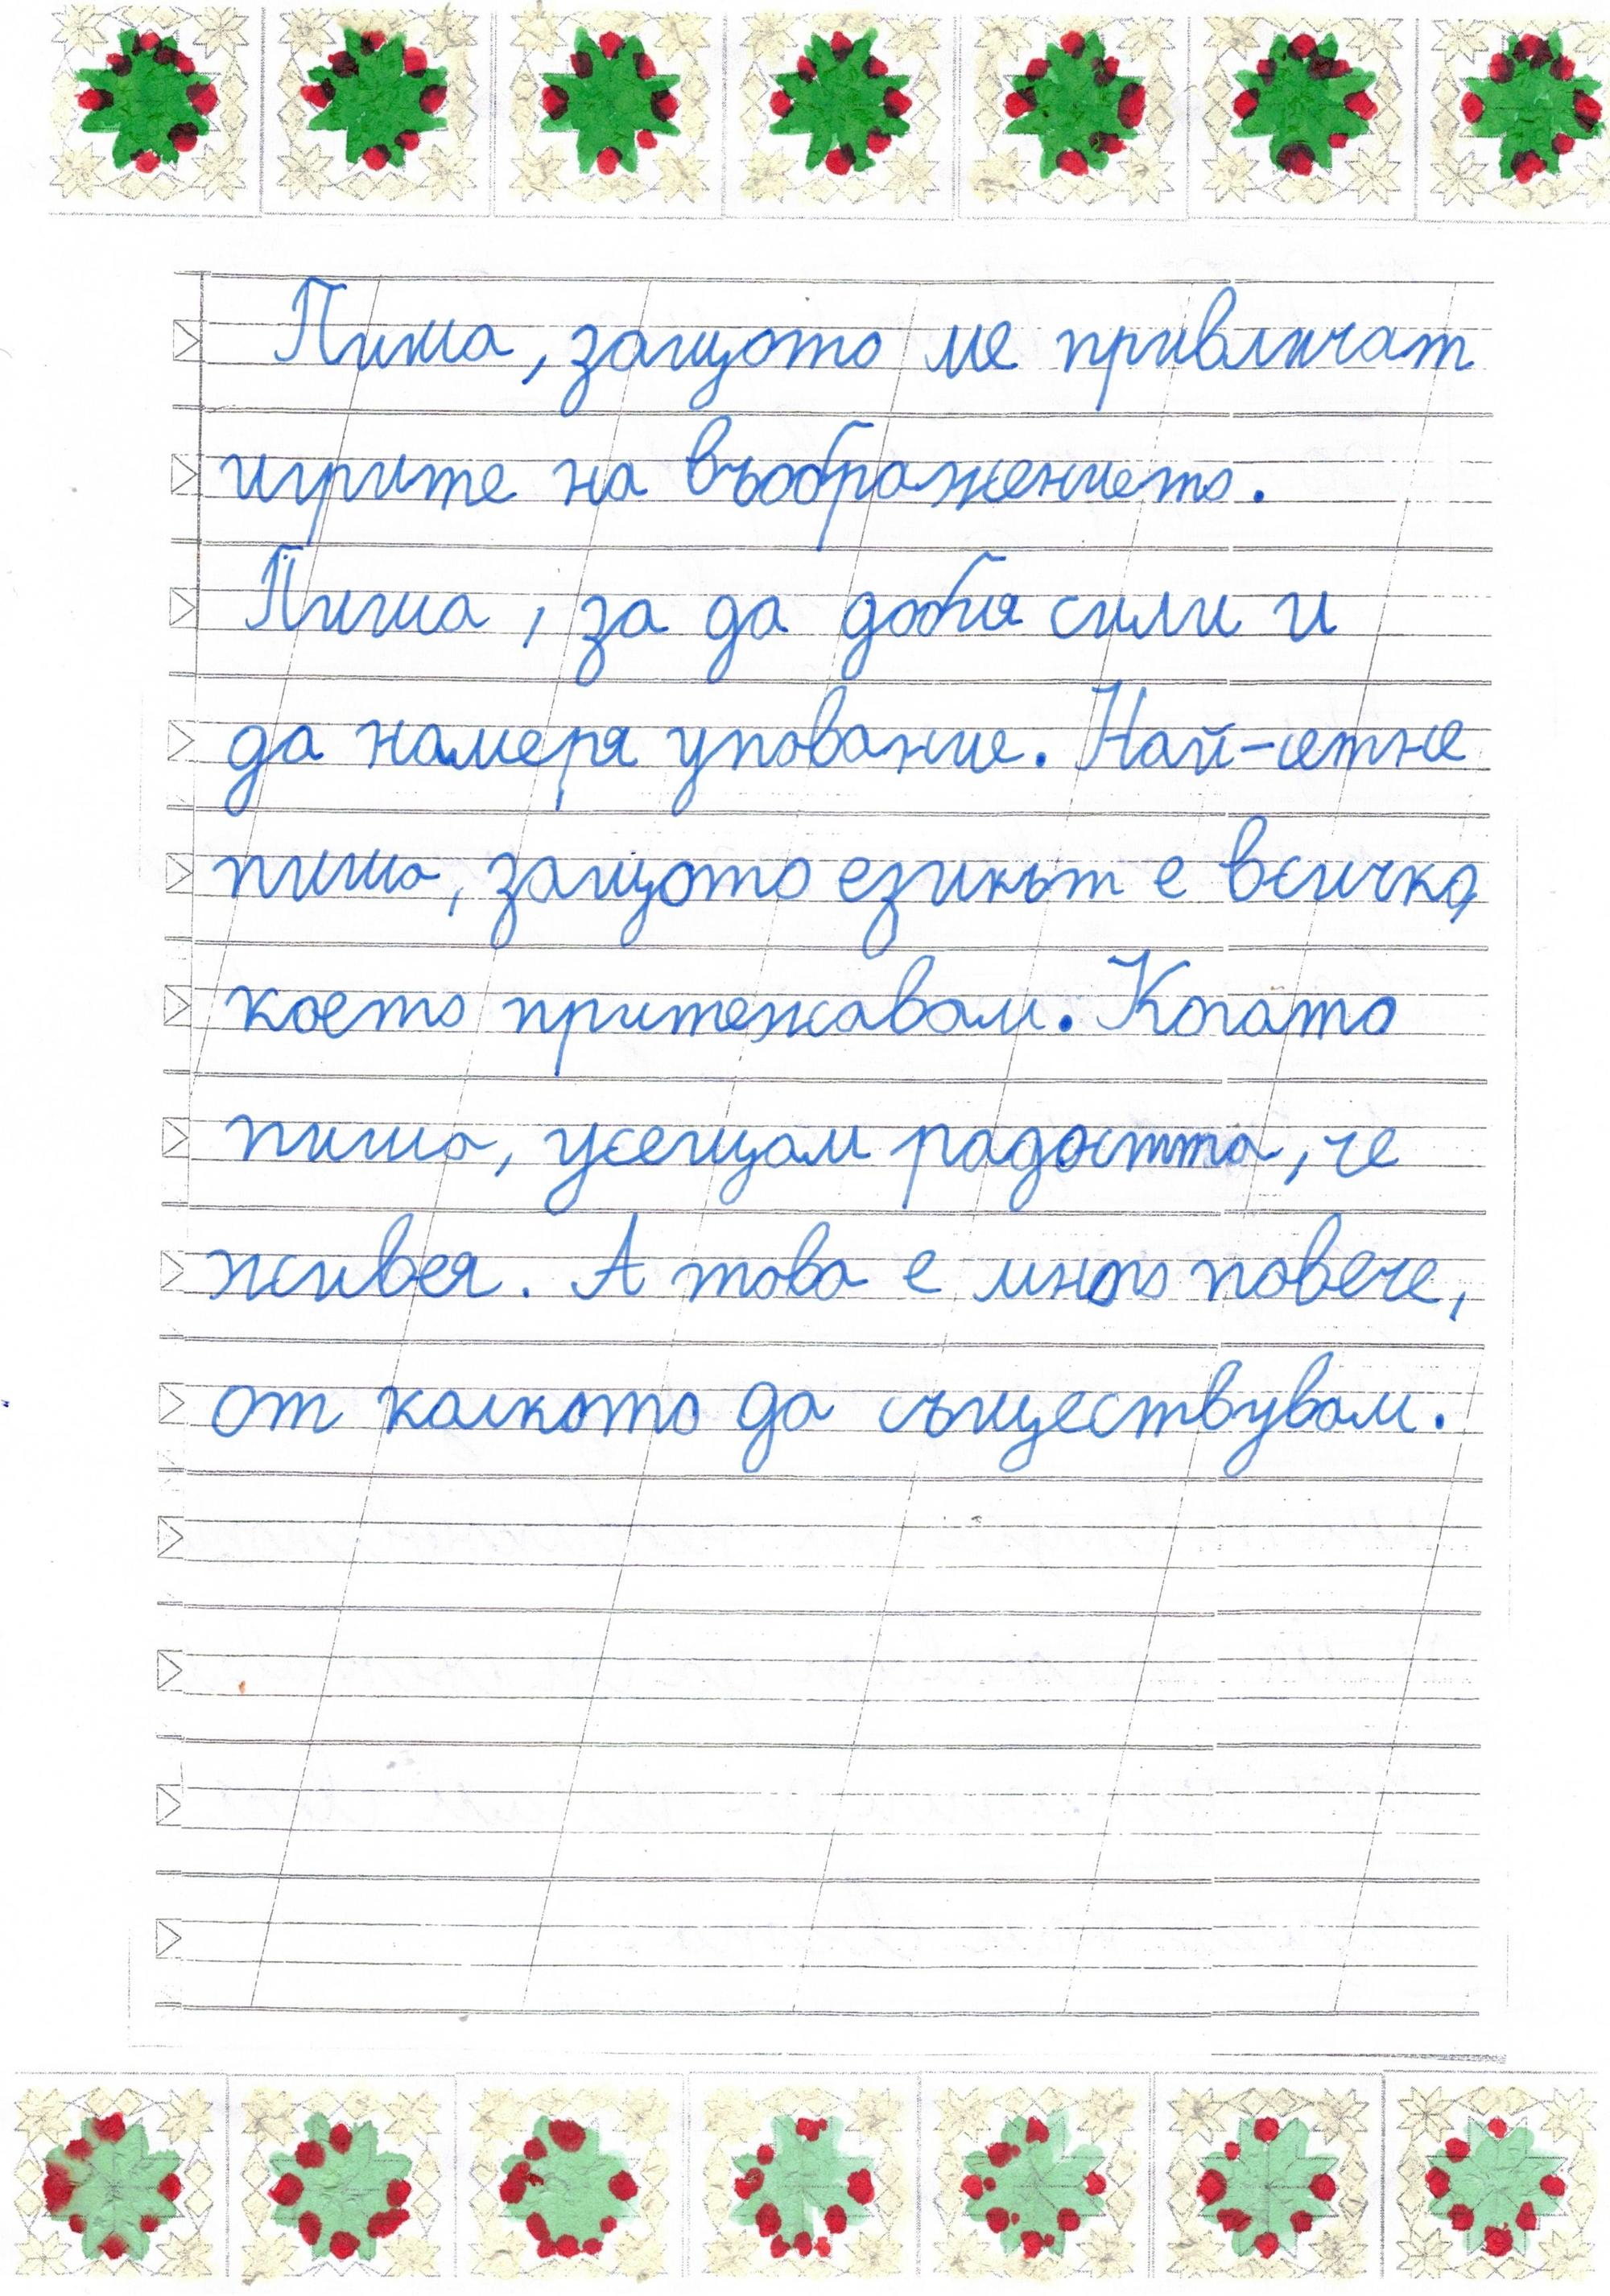 Пиша, защото ме привличат
игрите на въображението.
Пиша, за да добия сили и
да намеря упование. Най-сетне
пиша, защото езикът е всичко,
което притежавам. Когато
пиша, усещам радостта, че
живея. А това е много повече,
от колкото да съществувам.